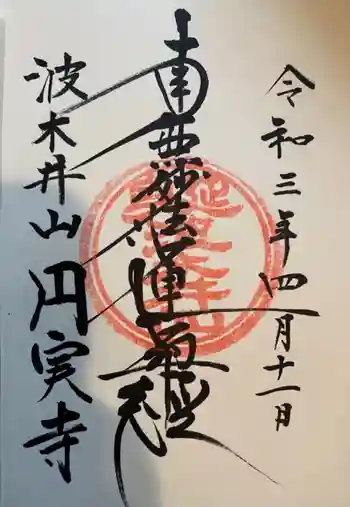 令和三年四月十一日
南無妙法蓮華経
波木井山
円実寺